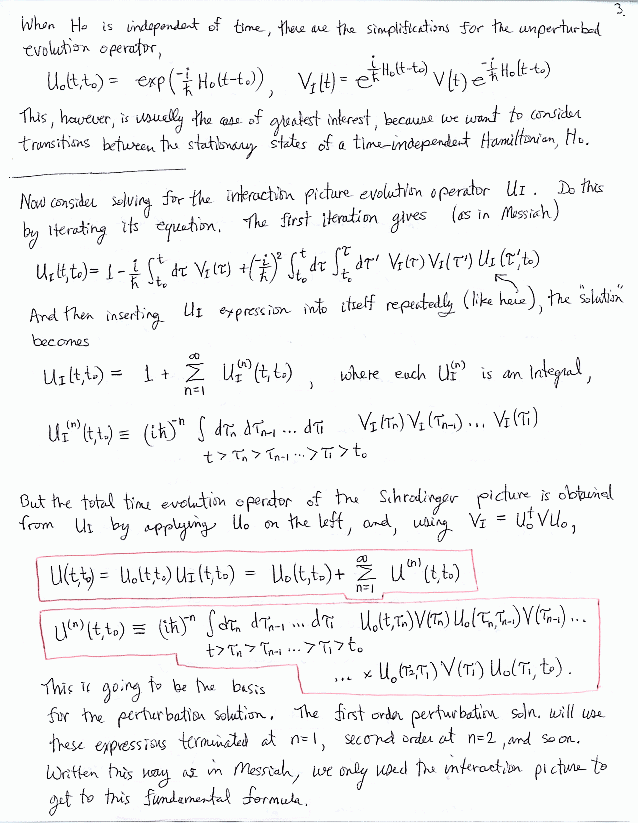 3.
When Ho is independent of time, there are the simplifications for the unperturbed
evolution operator,
U₀(t,t₀) = exp(-i/ħ H₀(t-t₀)), V_I(t) = e^{i/ħ H₀(t-t₀)} V(t) e^{-i/ħ H₀(t-t₀)}
This, however, is usually the case of greatest interest, because we want to consider
transitions between the stationary states of a time-independent Hamiltonian, H₀.
Now consider solving for the interaction picture evolution operator U_I. Do this
by iterating its equation. The first iteration gives (as in Messiah)
U_I(t,t₀) = 1 - i/ħ ∫_{t₀}^{t} dτ V_I(τ) + (-i/ħ)² ∫_{t₀}^{t} dτ ∫_{t₀}^{τ} dτ' V_I(τ) V_I(τ') U_I(τ',t₀)
And then inserting U_I expression into itself repeatedly (like here), the "solution"
becomes
U_I(t,t₀) = 1 + Σ_{n=1}^{∞} U_I^{(n)}(t,t₀), where each U_I^{(n)} is an integral,
U_I^{(n)}(t,t₀) ≡ (iħ)^{-n} ∫ dτₙ dτₙ₋₁ ... dτ₁ V_I(τₙ) V_I(τₙ₋₁) ... V_I(τ₁)
t > τₙ > τₙ₋₁ ... > τ₁ > t₀
But the total time evolution operator of the Schrodinger picture is obtained
from U_I by applying U₀ on the left, and, using V_I = U₀†VU₀,
U(t,t₀) = U₀(t,t₀) U_I(t,t₀) = U₀(t,t₀) + Σ_{n=1}^{∞} U^{(n)}(t,t₀)
U^{(n)}(t,t₀) ≡ (iħ)^{-n} ∫ dτₙ dτₙ₋₁ ... dτ₁ U₀(t,τₙ)V(τₙ) U₀(τₙ,τₙ₋₁)V(τₙ₋₁)...
t > τₙ > τₙ₋₁ ... > τ₁ > t₀
... × U₀(τ₂,τ₁) V(τ₁) U₀(τ₁,t₀).
This is going to be the basis
for the perturbation solution. The first order perturbation soln. will use
these expressions terminated at n=1, second order at n=2, and so on.
Written this way as in Messiah, we only used the interaction picture to
get to this fundamental formula.